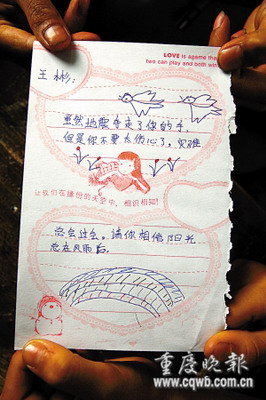 LOVE is agame that
two can play and both win
王彬:
虽然地震夺走了你的手,
但是你不要太伤心了,灾难
让我们在缘份的天空中,相识相知!
总会过去,请你相信阳光
总在风雨后.
重庆晚报
www.cqwb.com.cn